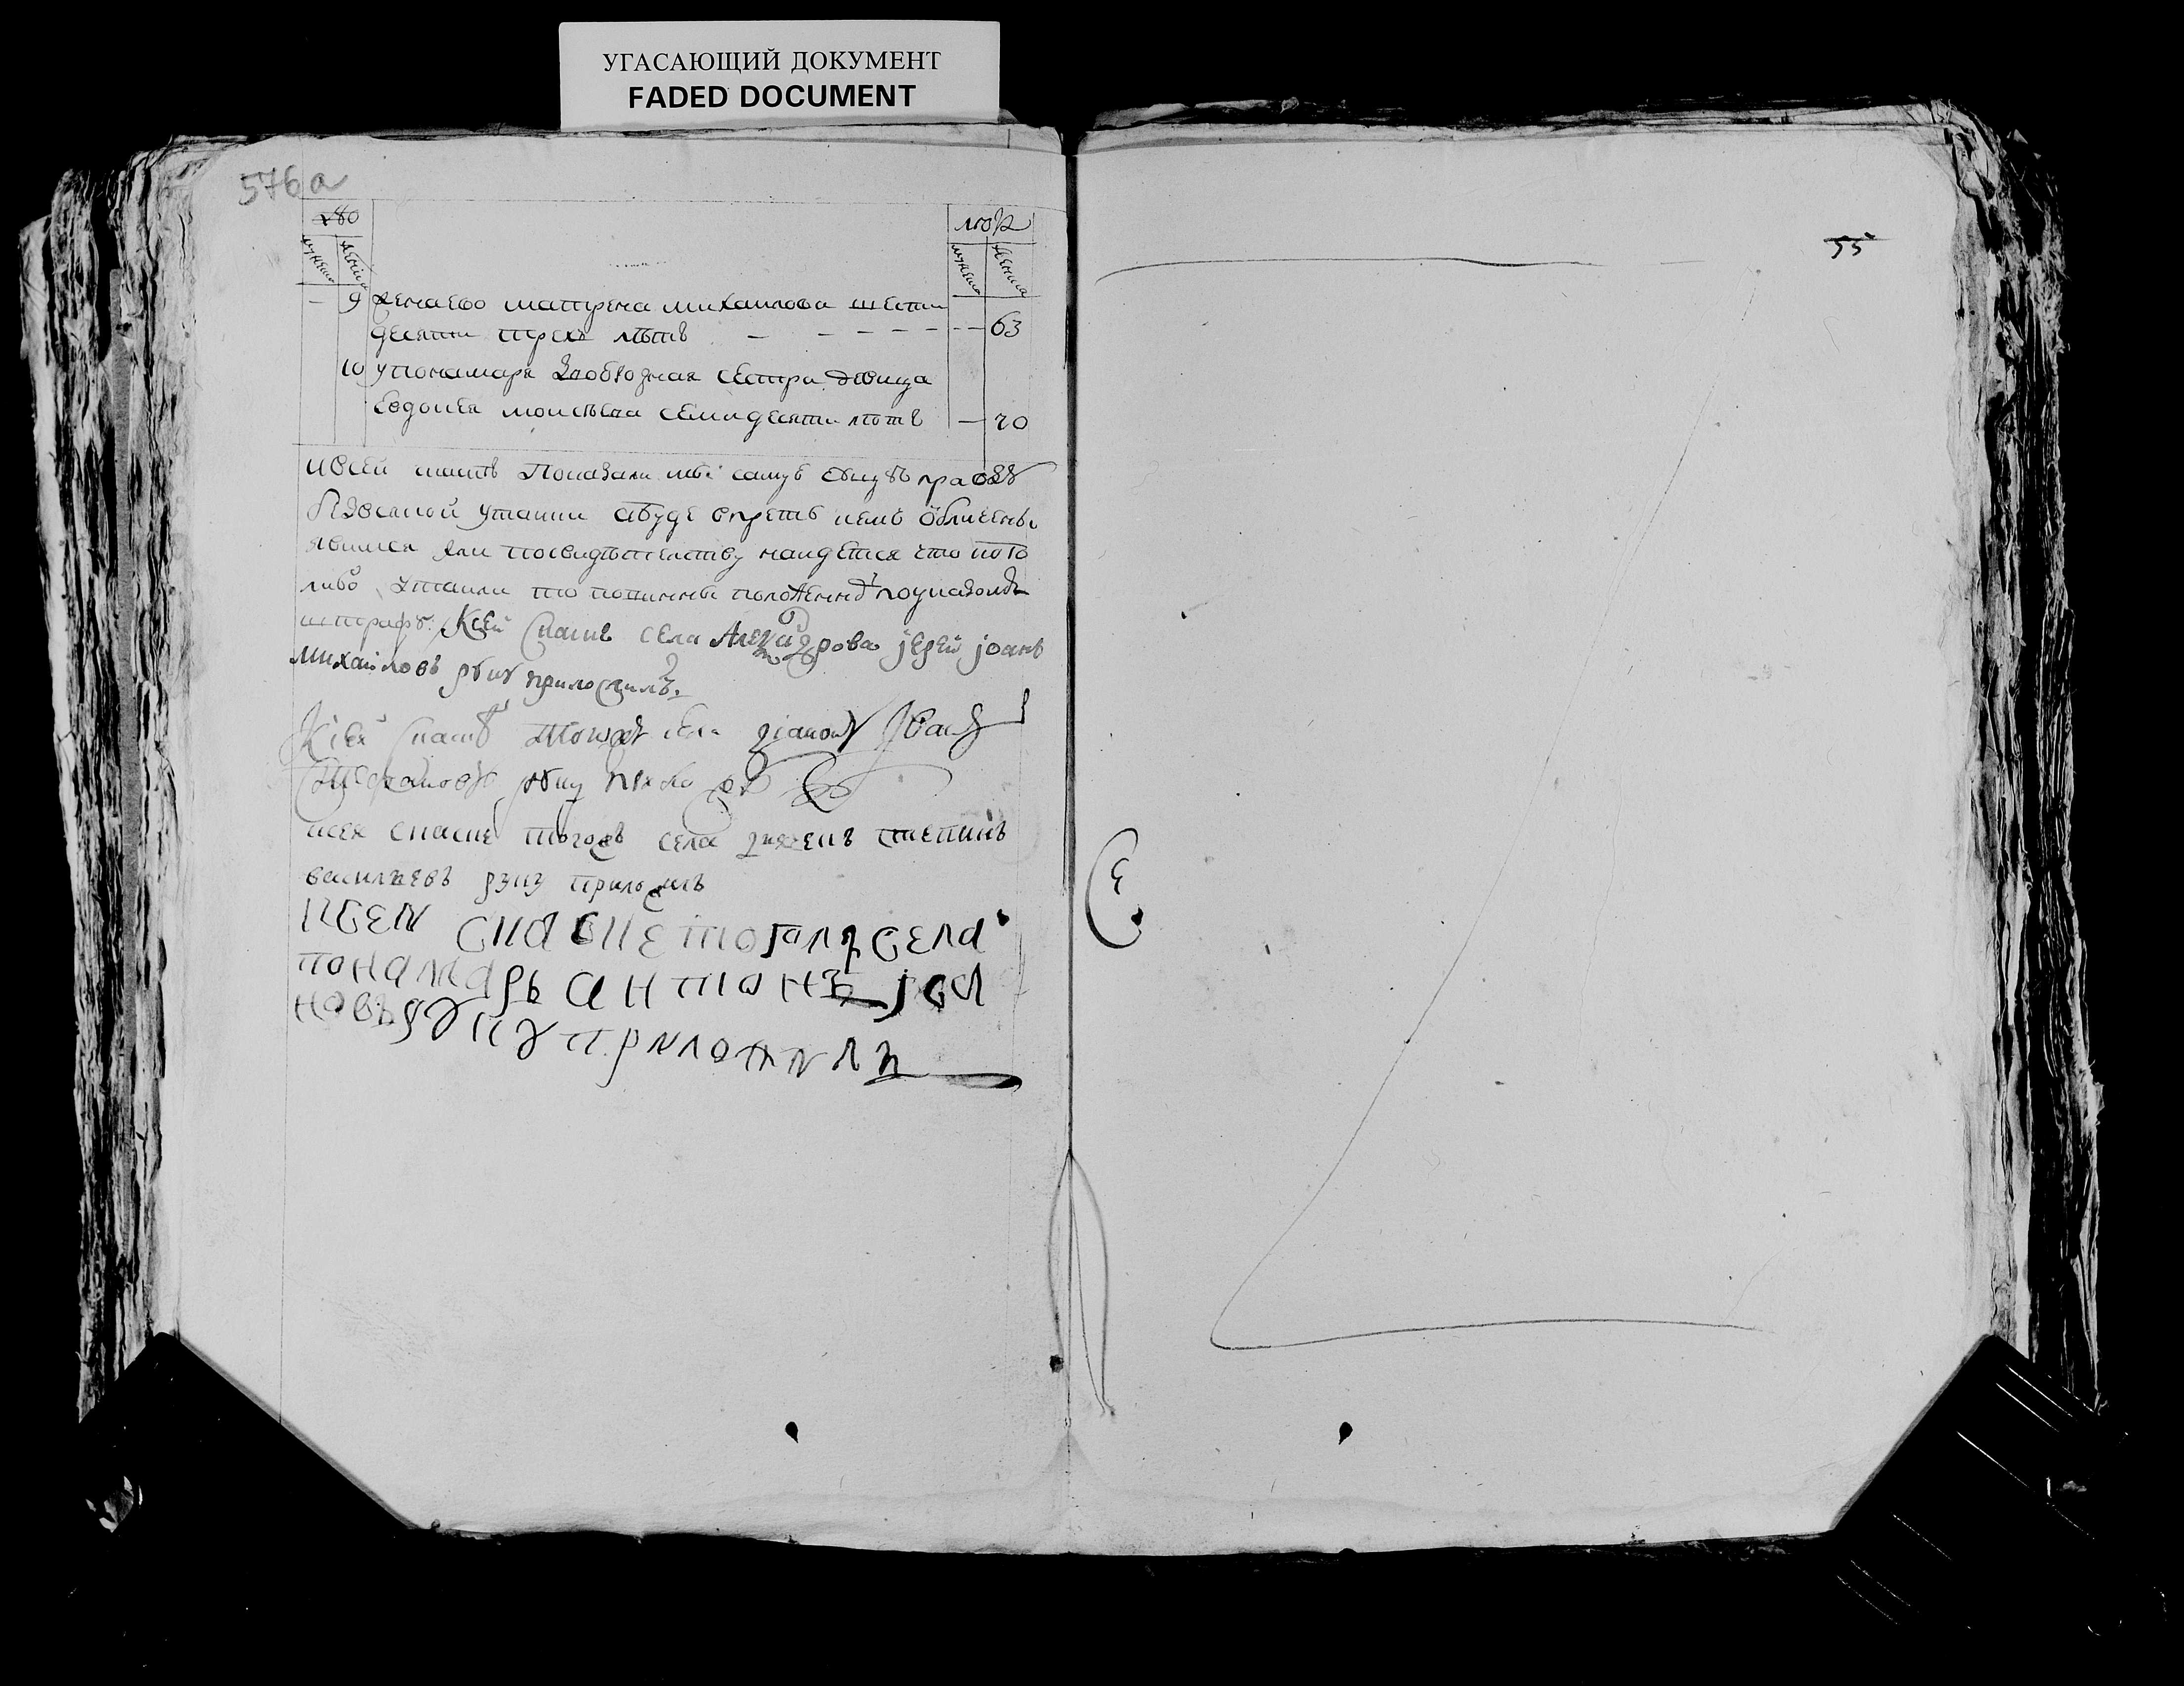 УГАСАЮЩИЙ ДОКУМЕНТ
FADED DOCUMENT
576а
мужеска женска
мужеска женска
9 жена ево матрена михаилова шести
десяти трехъ лѣтъ 63
10 у понамаря сестра девица
Евдокея моисѣева семидесяти лѣтъ 70
и всей скаскѣ показали мы самую сущую правду
утаики а буде впреть кемъ обличены
явимся или по свидѣтелству наидется что кого
либо утаили то повинны положенной по указомъ
штрафъ. К сей скаскѣ села Александрова іерей іоаннъ
михаиловъ руку приложилъ.
К сей скаскѣ тогожъ села діаконъ Іванъ
руку приложилъ
ксей скаске тогожъ села дьячекъ степанъ
васильевъ руку приложилъ
ксеи скаске тогожъ села
понамарь антонъ іва
новъ руку приложилъ
55